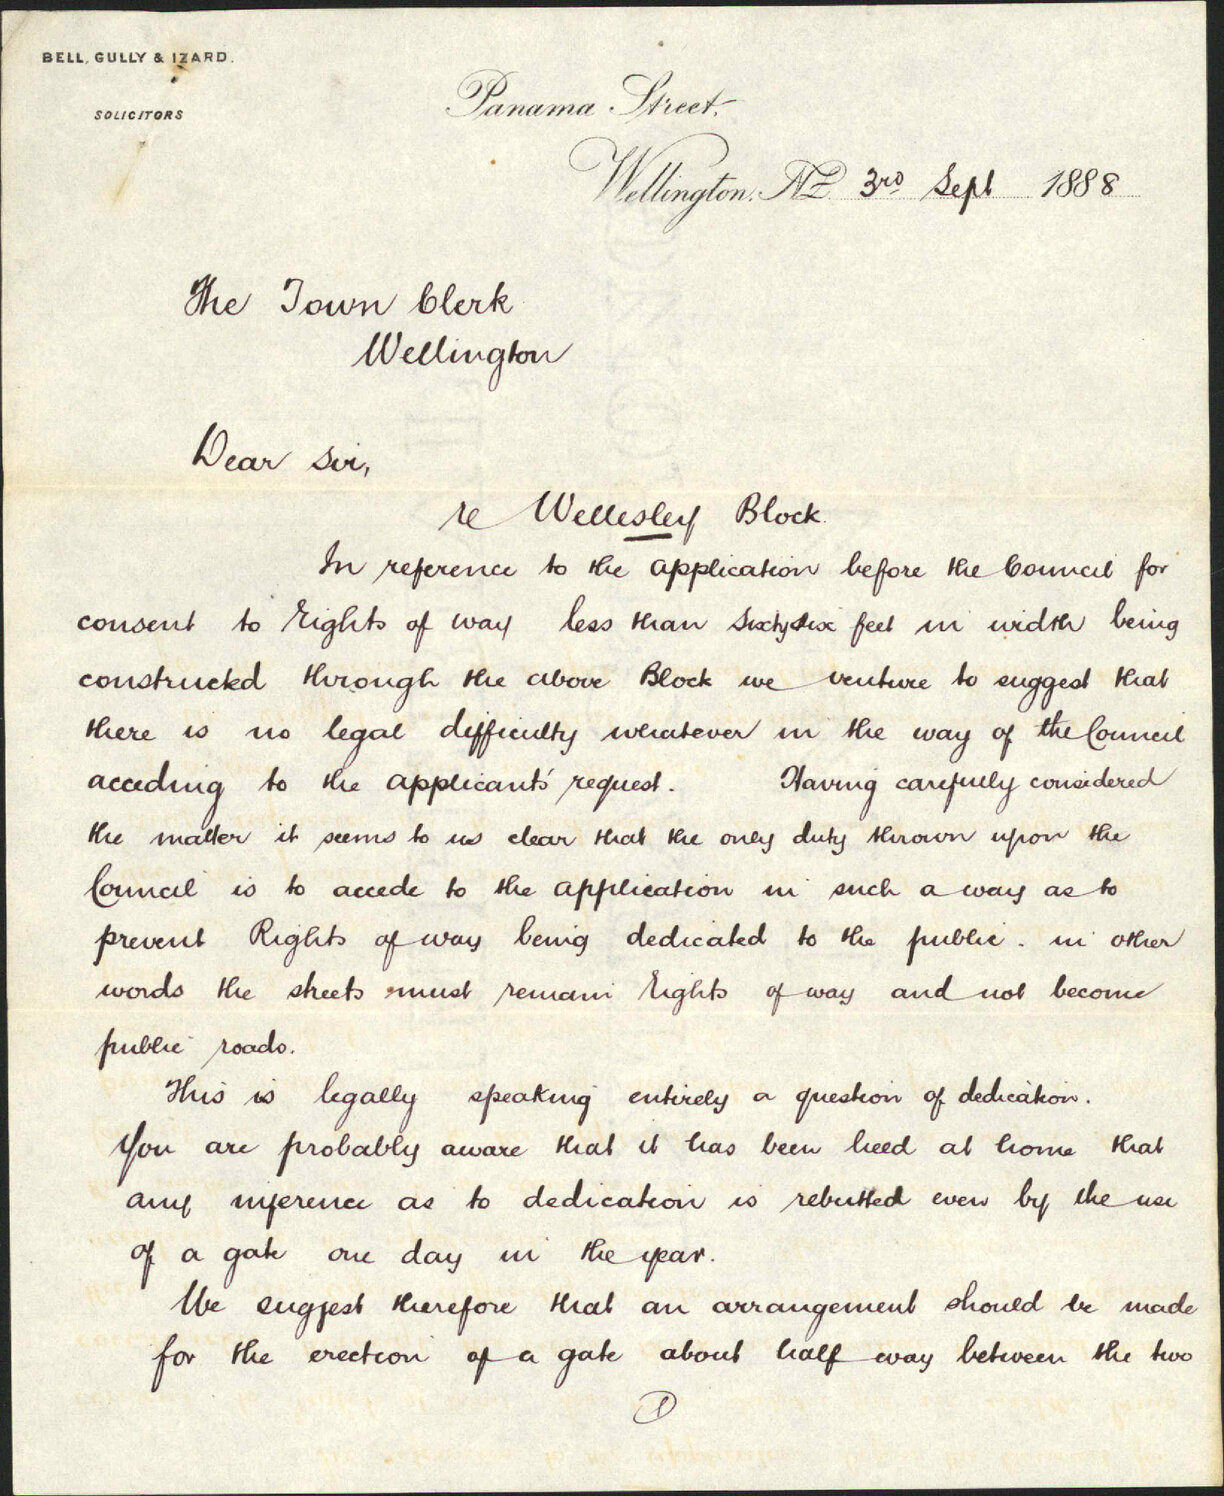 BELL, GULLY & IZARD.
SOLICITORS
Panama Street.
Wellington. NZ. 3rd Sept 1888
The Town Clerk
Wellington
Dear Sir,
re Wellesley Block
In reference to the application before the Council for
consent to Rights of way less than sixtysix feet in width being
constructed through the above Block we venture to suggest that
there is no legal difficulty whatever in the way of the Council
acceding to the applicants' request. Having carefully considered
the matter it seems to us clear that the only duty thrown upon the
Council is to accede to the application in such a way as to
prevent Rights of way being dedicated to the public. in other
words the streets must remain Rights of way and not become
public roads.
This is legally speaking entirely a question of dedication.
You are probably aware that it has been held at home that
any inference as to dedication is rebutted even by the use
of a gate one day in the year.
We suggest therefore that an arrangement should be made
for the erection of a gate about half way between the two
1